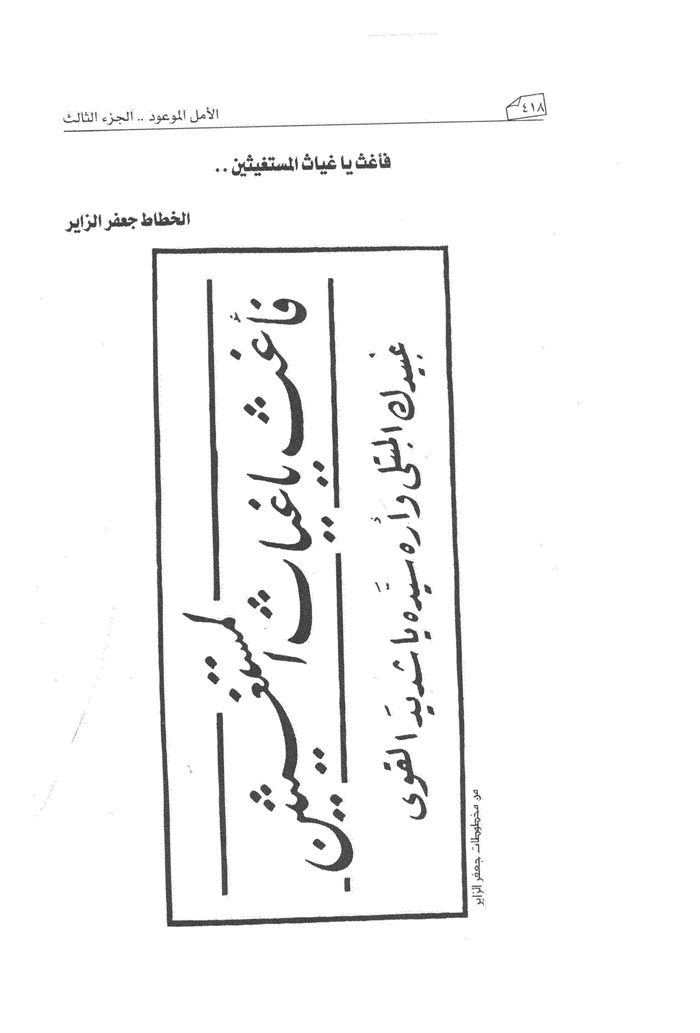 ٤١٨
الأمل الموعود .. الجزء الثالث
فأغث يا غياث المستغيثين ..
الخطاط جعفر الزاير
فأغث يا غياث المستغيثين
عبيدك المبتلى وأره سيّده يا شديدَ القوى
من مخطوطات جعفر الزاير